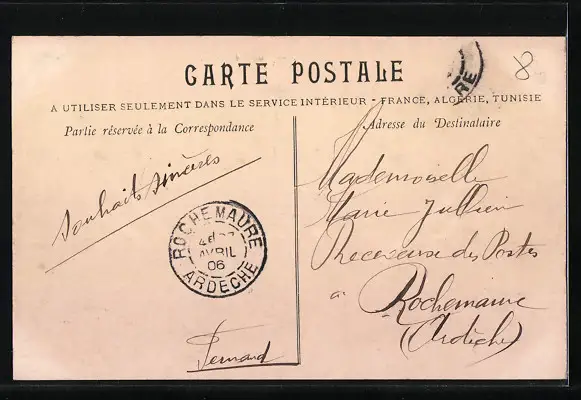 8
CARTE POSTALE
A UTILISER SEULEMENT DANS LE SERVICE INTÉRIEUR - FRANCE, ALGÉRIE, TUNISIE
Partie réservée à la Correspondance
Adresse du Destinataire
Souhaits sincères
Fernand
ROCHEMAURE
AVRIL
06
ARDÈCHE
RE
Mademoiselle
Marie Jullien
Receveuse des Postes
à Rochemaure
(Ardèche)